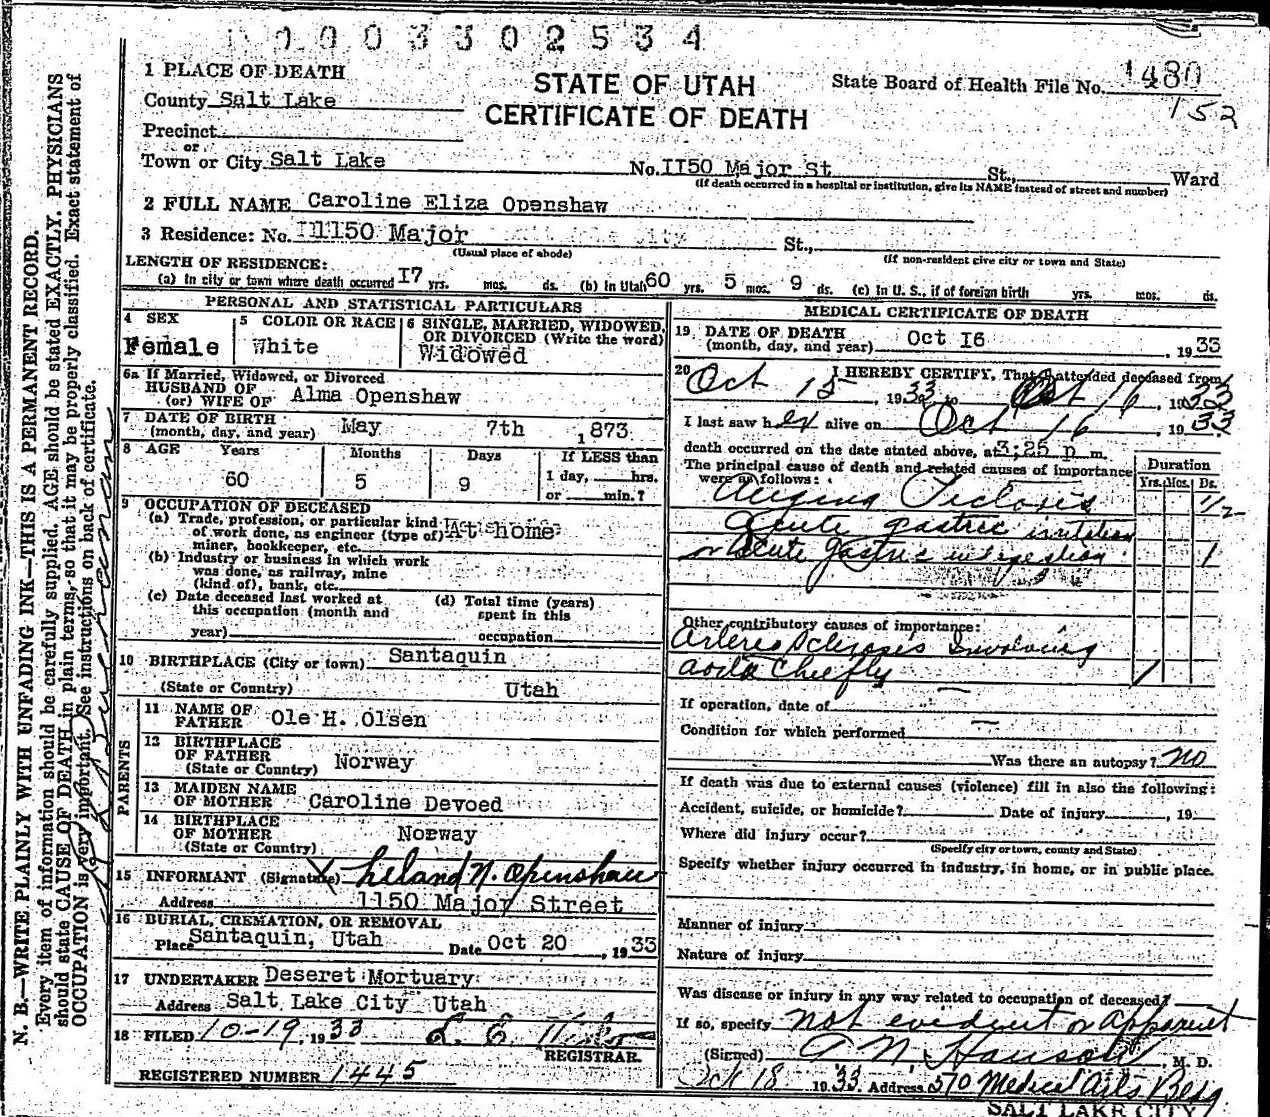 0003302534
1 PLACE OF DEATH
STATE OF UTAH
CERTIFICATE OF DEATH
State Board of Health File No. 1480
152
County Salt Lake
Precinct
or
Town or City Salt Lake No. II50 Major St St., Ward
(If death occurred in a hospital or institution, give its NAME instead of street and number)
2 FULL NAME Caroline Eliza Openshaw
3 Residence: No. 1150 Major St.,
(Usual place of abode) (If non-resident give city or town and State)
LENGTH OF RESIDENCE:
(a) In city or town where death occurred I7 yrs. mos. ds. (b) In Utah 60 yrs. 5 mos. 9 ds. (c) In U. S., if of foreign birth yrs. mos. ds.
PERSONAL AND STATISTICAL PARTICULARS
4 SEX
Female
5 COLOR OR RACE
White
6 SINGLE, MARRIED, WIDOWED, OR DIVORCED (Write the word)
Widowed
6a If Married, Widowed, or Divorced
HUSBAND OF
(or) WIFE OF Alma Openshaw
7 DATE OF BIRTH
(month, day, and year) May 7th 1873
8 AGE Years Months Days If LESS than
60 5 9 1 day, hrs.
or min.?
9 OCCUPATION OF DECEASED
(a) Trade, profession, or particular kind
of work done, as engineer (type of) At home
miner, bookkeeper, etc.
(b) Industry or business in which work
was done, as railway, mine
(kind of), bank, etc.
(c) Date deceased last worked at
this occupation (month and
year)
(d) Total time (years)
spent in this
occupation
10 BIRTHPLACE (City or town) Santaquin
(State or Country) Utah
PARENTS
11 NAME OF
FATHER Ole H. Olsen
12 BIRTHPLACE
OF FATHER
(State or Country) Norway
13 MAIDEN NAME
OF MOTHER Caroline Devoed
14 BIRTHPLACE
OF MOTHER
(State or Country) Norway
15 INFORMANT (Signature) X Leland N. Openshaw
Address 1150 Major Street
16 BURIAL, CREMATION, OR REMOVAL
Place Santaquin, Utah Date Oct 20, 1933
17 UNDERTAKER Deseret Mortuary
Address Salt Lake City Utah
18 FILED 10-19, 1933
REGISTRAR.
REGISTERED NUMBER 1445
MEDICAL CERTIFICATE OF DEATH
19 DATE OF DEATH
(month, day, and year) Oct I6, 1933
20 I HEREBY CERTIFY, That I attended deceased from
Oct 15, 1933, to Oct 16, 1933
I last saw her alive on Oct 16, 1933
death occurred on the date stated above, at 3:25 p m.
The principal cause of death and related causes of importance
were as follows:
Duration
Yrs. Mos. Ds.
Angina 1/2
acute gastric irritation
or acute gastric indigestion 1
Other contributory causes of importance:
Arterio Sclerosis Involving
aorta Cheefly 1
If operation, date of
Condition for which performed
Was there an autopsy? no
If death was due to external causes (violence) fill in also the following:
Accident, suicide, or homicide? Date of injury, 19
Where did injury occur?
(Specify city or town, county and State)
Specify whether injury occurred in industry, in home, or in public place.
Manner of injury
Nature of injury
Was disease or injury in any way related to occupation of deceased?
If so, specify not evident or apparent
(Signed) A N Hanson, M. D.
Oct 18 1933 Address 570 Medical Arts Bldg.
SALT LAKE CITY
N. B.—WRITE PLAINLY WITH UNFADING INK—THIS IS A PERMANENT RECORD.
Every item of information should be carefully supplied. AGE should be stated EXACTLY. PHYSICIANS
should state CAUSE OF DEATH in plain terms, so that it may be properly classified. Exact statement of
OCCUPATION is very important. See instructions on back of certificate.